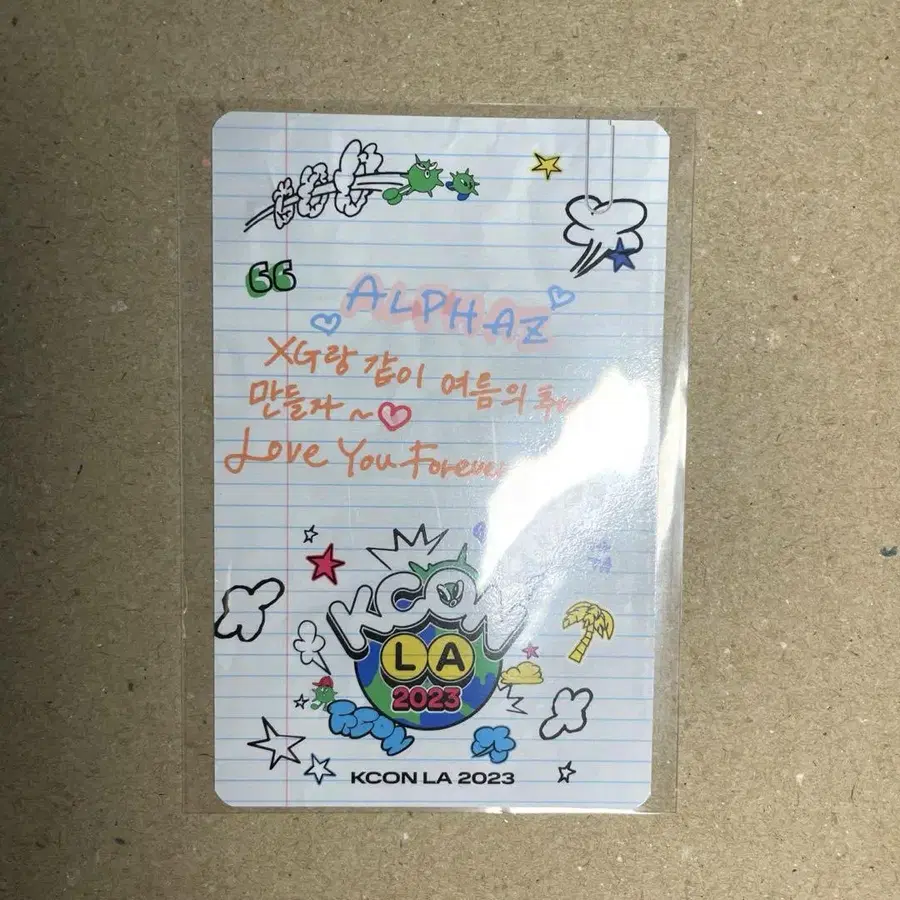 ALPHAZ
XG랑 같이 여름의
만들자~♡
Love You Forever
KCON
LA
2023
KCON
KCON LA 2023